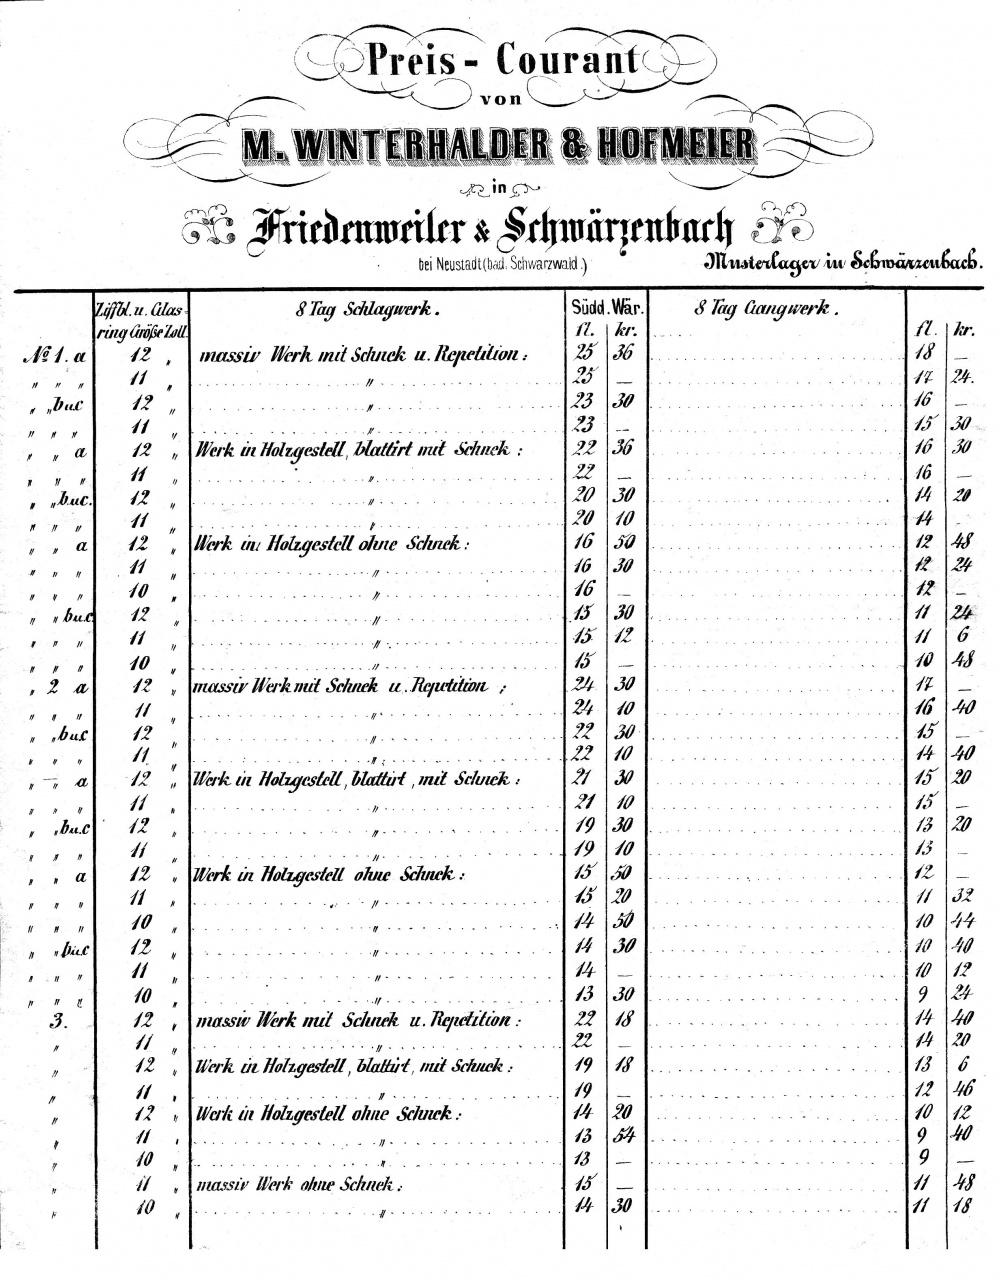 Preis - Courant
von
M. WINTERHALDER & HOFMEIER
in
Friedenweiler & Schwärzenbach
bei Neustadt (bad. Schwarzwald.)
Musterlager in Schwärzenbach.
Ziffbl. u. Glas- 8 Tag Schlagwerk. Südd. Wär. 8 Tag Gangwerk.
ring Größe Zoll. fl. kr. fl. kr.
No 1. a 12 „ massiv Werk mit Schnek u. Repetition: 25 36 18 —
„ „ „ 11 „ „ 25 — 17 24.
„ „ b u c 12 „ „ 23 30 16 —
„ „ „ 11 „ „ 23 — 15 30
„ „ a 12 „ Werk in Holzgestell, blattirt mit Schnek: 22 36 16 30
„ „ „ 11 „ „ 22 — 16 —
„ „ b u c. 12 „ „ 20 30 14 20
„ „ „ 11 „ „ 20 10 14 —
„ „ a 12 „ Werk in Holzgestell ohne Schnek: 16 50 12 48
„ „ „ 11 „ „ 16 30 12 24
„ „ „ 10 „ „ 16 — 12 —
„ „ b u. c 12 „ „ 15 30 11 24
„ „ „ 11 „ „ 15 12 11 6
„ „ „ 10 „ „ 15 — 10 48
„ 2 a 12 „ massiv Werk mit Schnek u. Repetition ; 24 30 17 —
„ „ „ 11 „ „ 24 10 16 40
„ „ b u c 12 „ „ 22 30 15 —
„ „ „ 11 „ „ 22 10 14 40
„ — a 12 „ Werk in Holzgestell, blattirt, mit Schnek: 21 30 15 20
„ „ „ 11 „ „ 21 10 15 —
„ „ b u. c 12 „ „ 19 30 13 20
„ „ „ 11 „ „ 19 10 13 —
„ „ a 12 „ Werk in Holzgestell ohne Schnek: 15 50 12 —
„ „ „ 11 „ „ 15 20 11 32
„ „ „ 10 „ „ 14 50 10 44
„ „ b u. c 12 „ „ 14 30 10 40
„ „ „ 11 „ „ 14 — 10 12
„ „ „ 10 „ „ 13 30 9 24
3. 12 „ massiv Werk mit Schnek u. Repetition: 22 18 14 40
„ 11 „ „ 22 — 14 20
„ 12 „ Werk in Holzgestell, blattirt, mit Schnek: 19 18 13 6
„ 11 „ „ 19 — 12 46
„ 12 „ Werk in Holzgestell ohne Schnek: 14 20 10 12
„ 11 „ „ 13 54 9 40
„ 10 „ „ 13 — 9 —
„ 11 „ massiv Werk ohne Schnek: 15 — 11 48
„ 10 „ „ 14 30 11 18